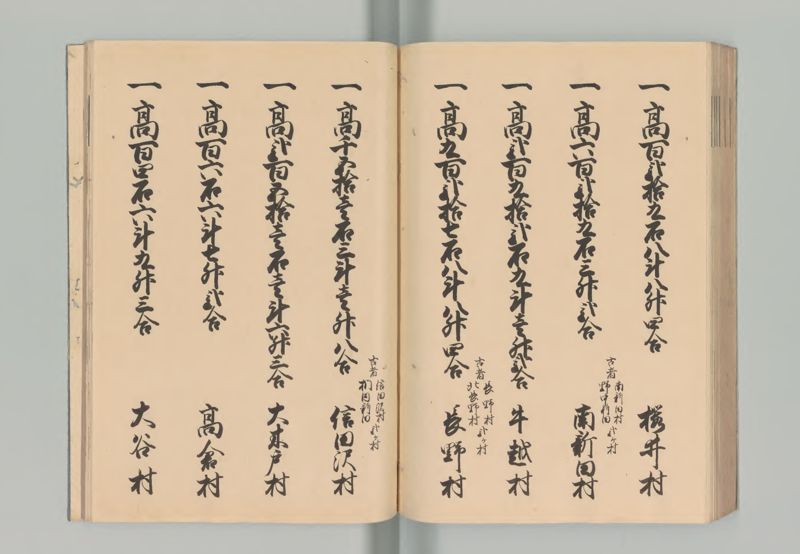 一高百弐拾九石八斗八升四合 櫻井村
一高六百弐拾九石三升弐合 南新田村
古者 南新田村 弐ヶ村
野中新田
一高弐百九拾弐石九斗壱升弐合 牛越村
一高九百弐拾七石八斗八升四合 長野村
古者 長野村 弐ヶ村
北長野村
一高千五拾壱石三斗壱升八合 信田沢村
古者 信田沢村 弐ヶ村
新田
一高弐百五拾壱石壱斗六升三合 大木戸村
一高百六石六斗七升弐合 高倉村
一高百四石六斗九升三合 大谷村